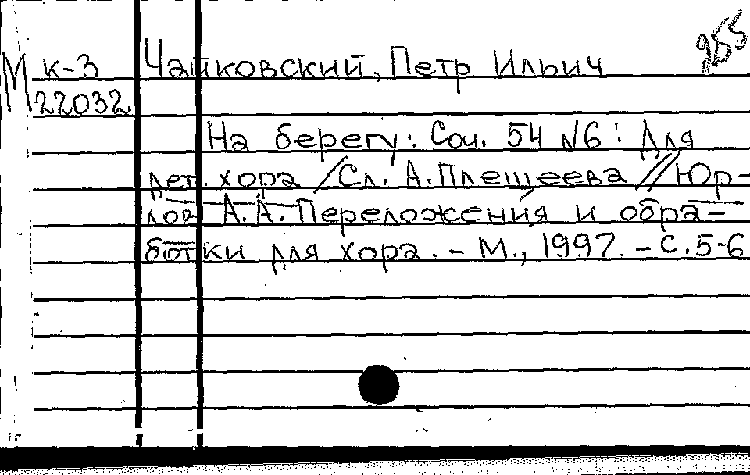 255
М к-3 Чайковский, Петр Ильич
22032
На берегу: Соч. 54 №6: Для
дет. хора / Сл. А. Плещеева // Юр-
лов А.А. Переложения и обра-
ботки для хора. - М., 1997. - С. 5-6